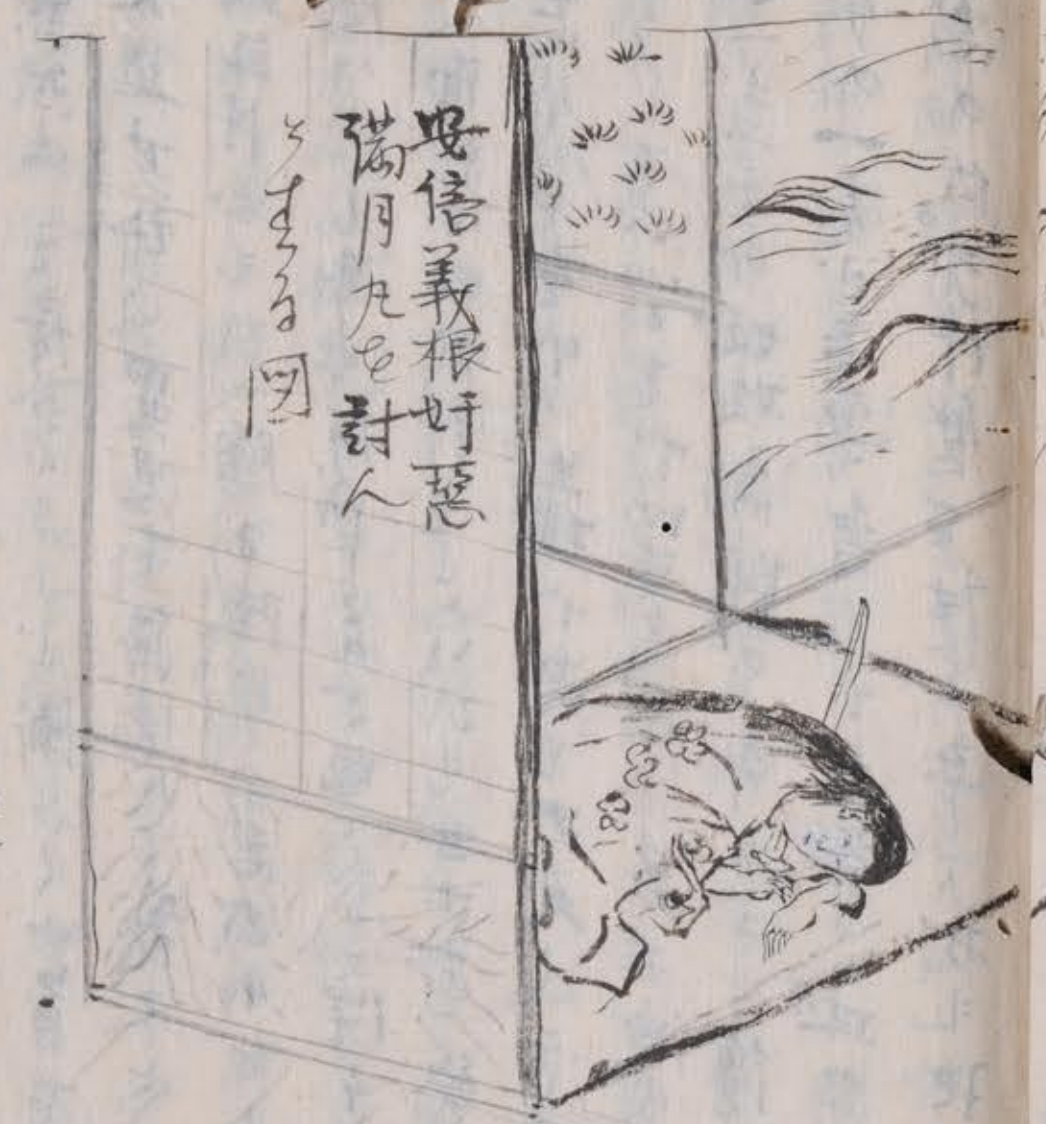 安倍義根奸悪
満月丸を討ん
とする図